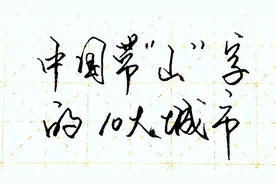 中国带“山”字
的10大城市